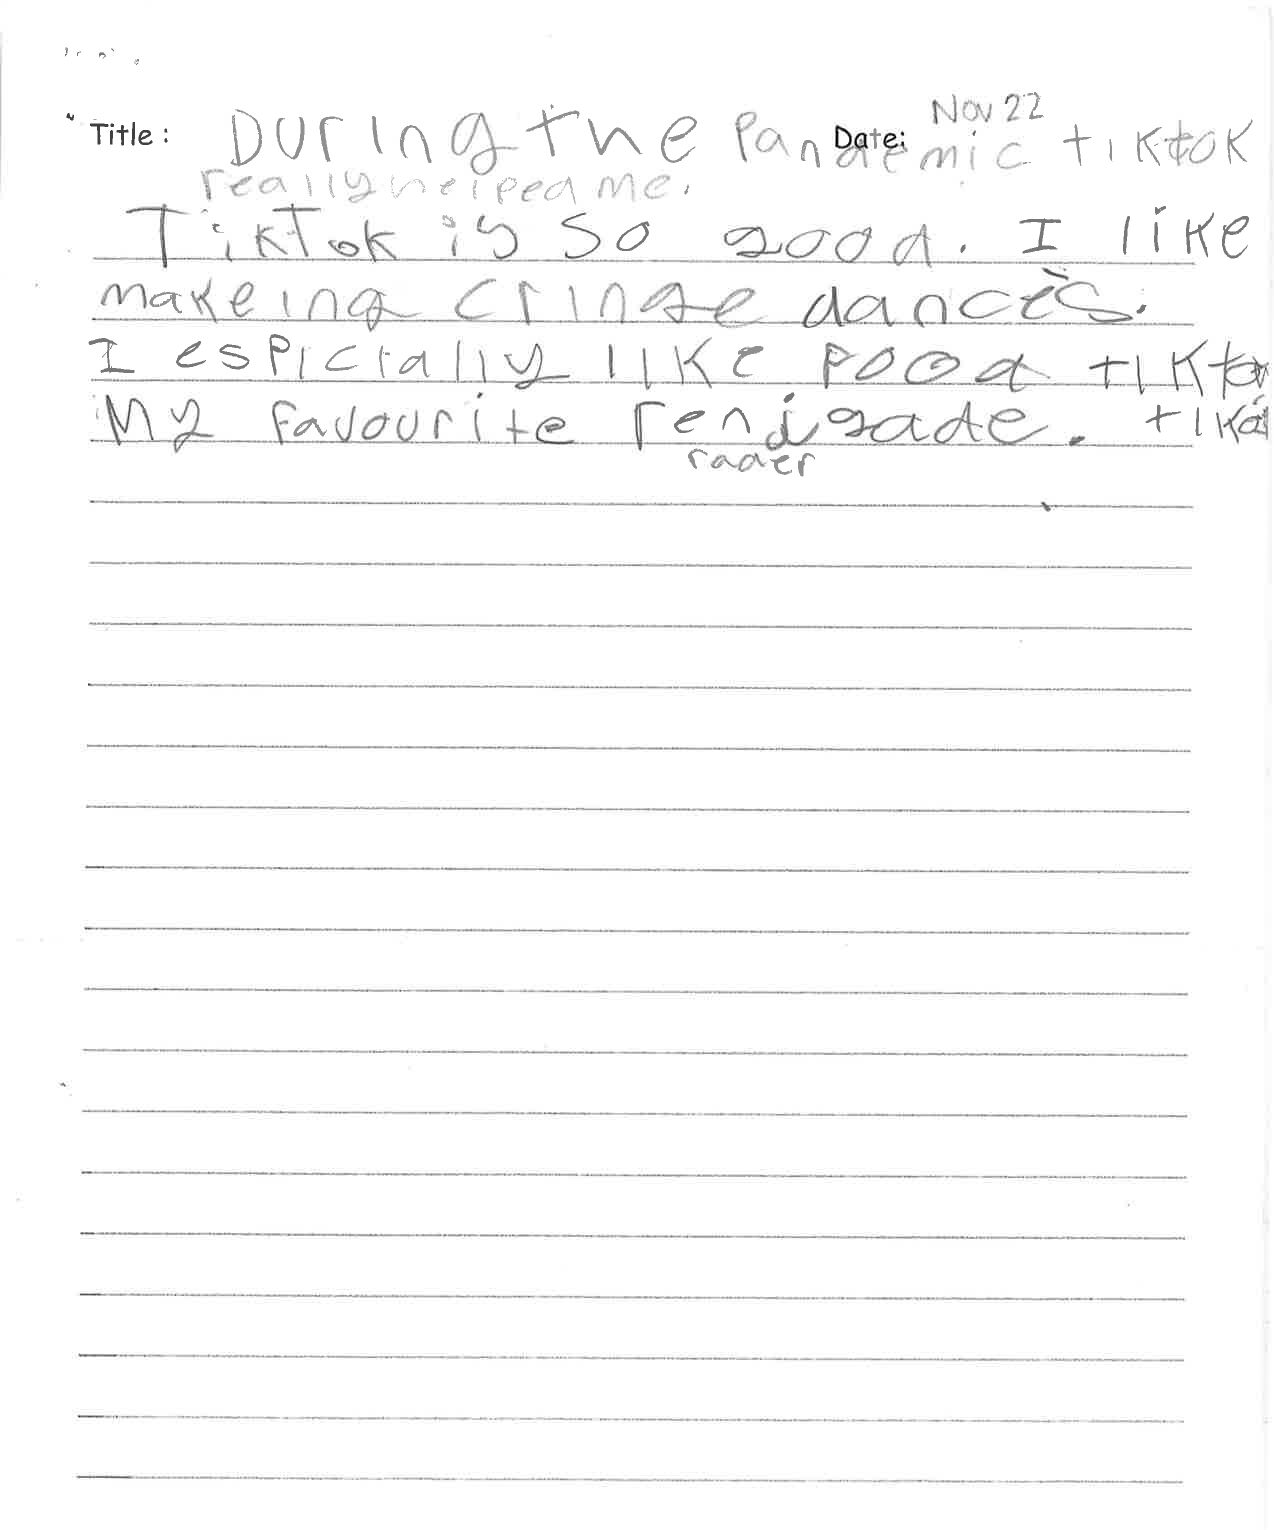 Title: During the Pandemic tiktok
Date: Nov 22
really helped me.
TikTok is so good. I like
makeing cringe dances.
I espicially like food tiktok
My favourite renigade. tiktok